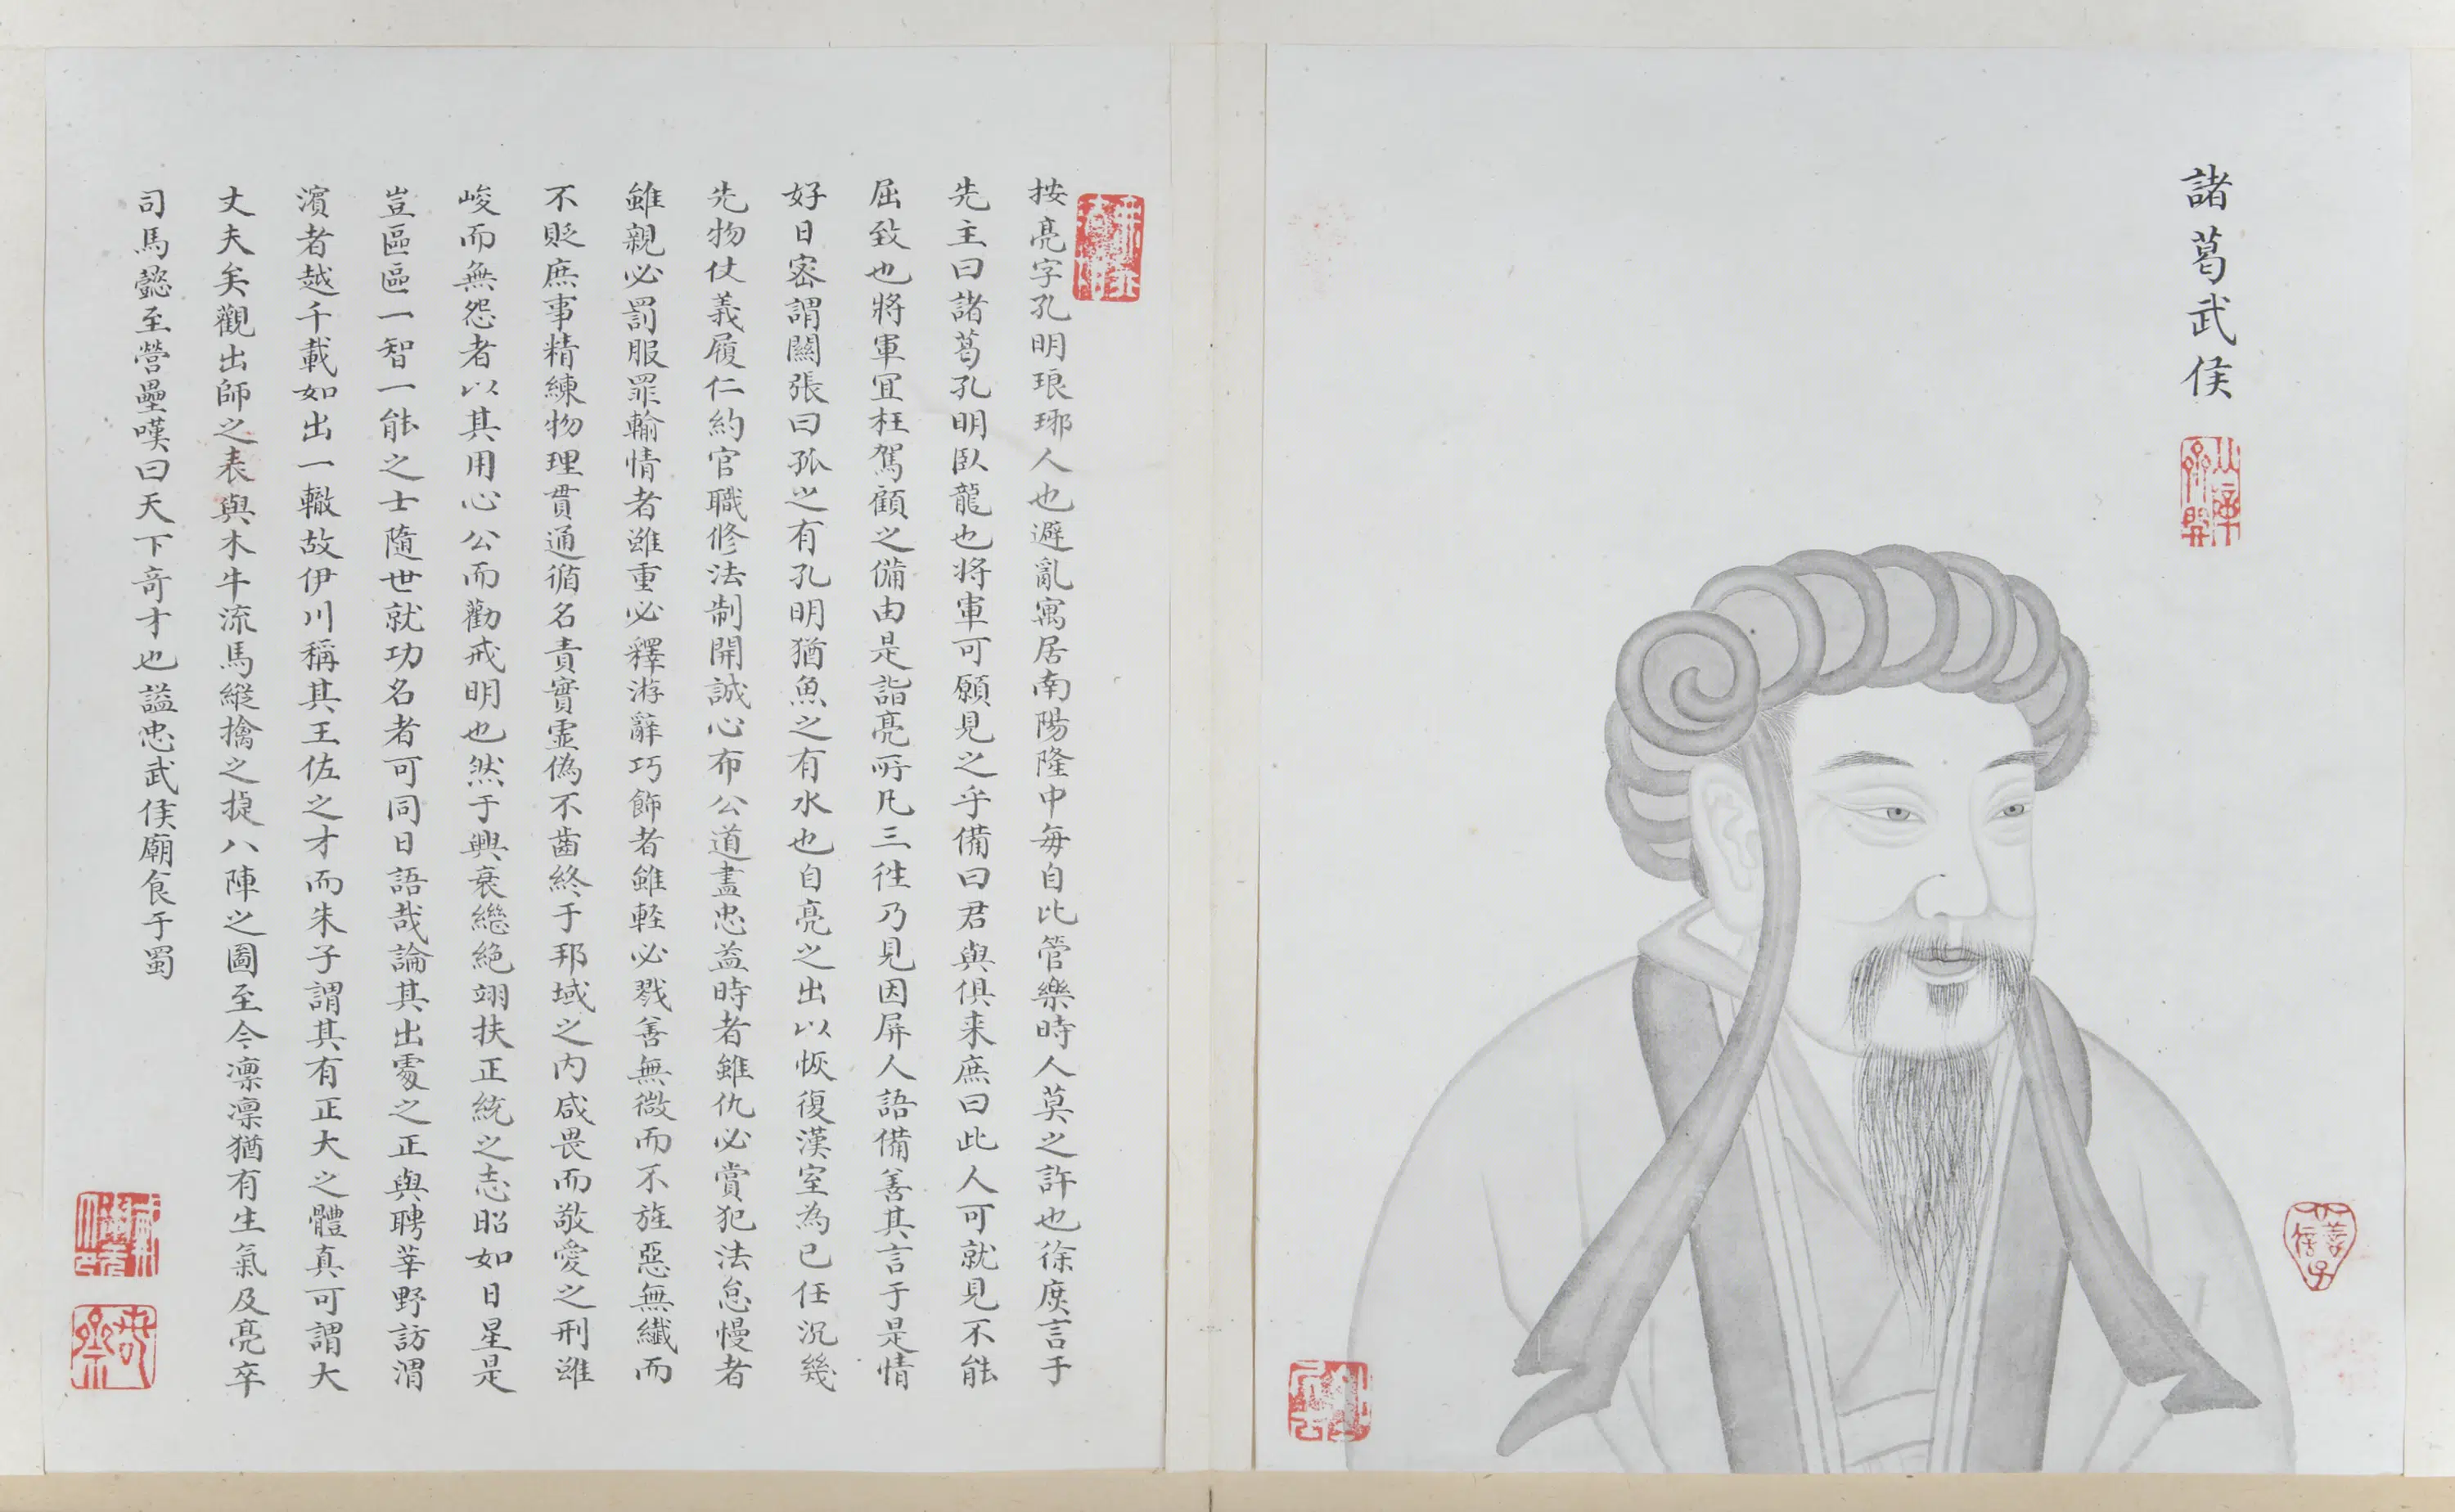 諸葛武侯
按亮字孔明琅琊人也避亂寓居南陽隆中每自比管樂時人莫之許也徐庶言于
先主曰諸葛孔明臥龍也将軍可願見之乎備曰君與俱来庶曰此人可就見不能
屈致也將軍宜枉駕顧之備由是詣亮所凡三徃乃見因屏人語備善其言于是情
好日密謂關張曰孤之有孔明猶魚之有水也自亮之出以恢復漢室為已任沉幾
先物仗義履仁約官職修法制開誠心布公道盡忠益時者雖仇必賞犯法怠慢者
雖親必罰服罪輸情者雖重必釋游辭巧飾者雖軽必戮善無微而不旌惡無纖而
不貶庶事精練物理貫通循名責實虛偽不齒終于邦域之内咸畏而敬愛之刑雖
峻而無怨者以其用心公而勸戒明也然于興衰繼絶翊扶正統之志昭如日星是
豈區區一智一能之士隨世就功名者可同日語哉論其出處之正與聘莘野訪渭
濱者越千載如出一轍故伊川稱其王佐之才而朱子謂其有正大之體真可謂大
丈夫矣觀出師之表與木牛流馬縱擒之捷八陣之圖至今凛凛猶有生氣及亮卒
司馬懿至營壘嘆曰天下奇才也謚忠武侯廟食于蜀